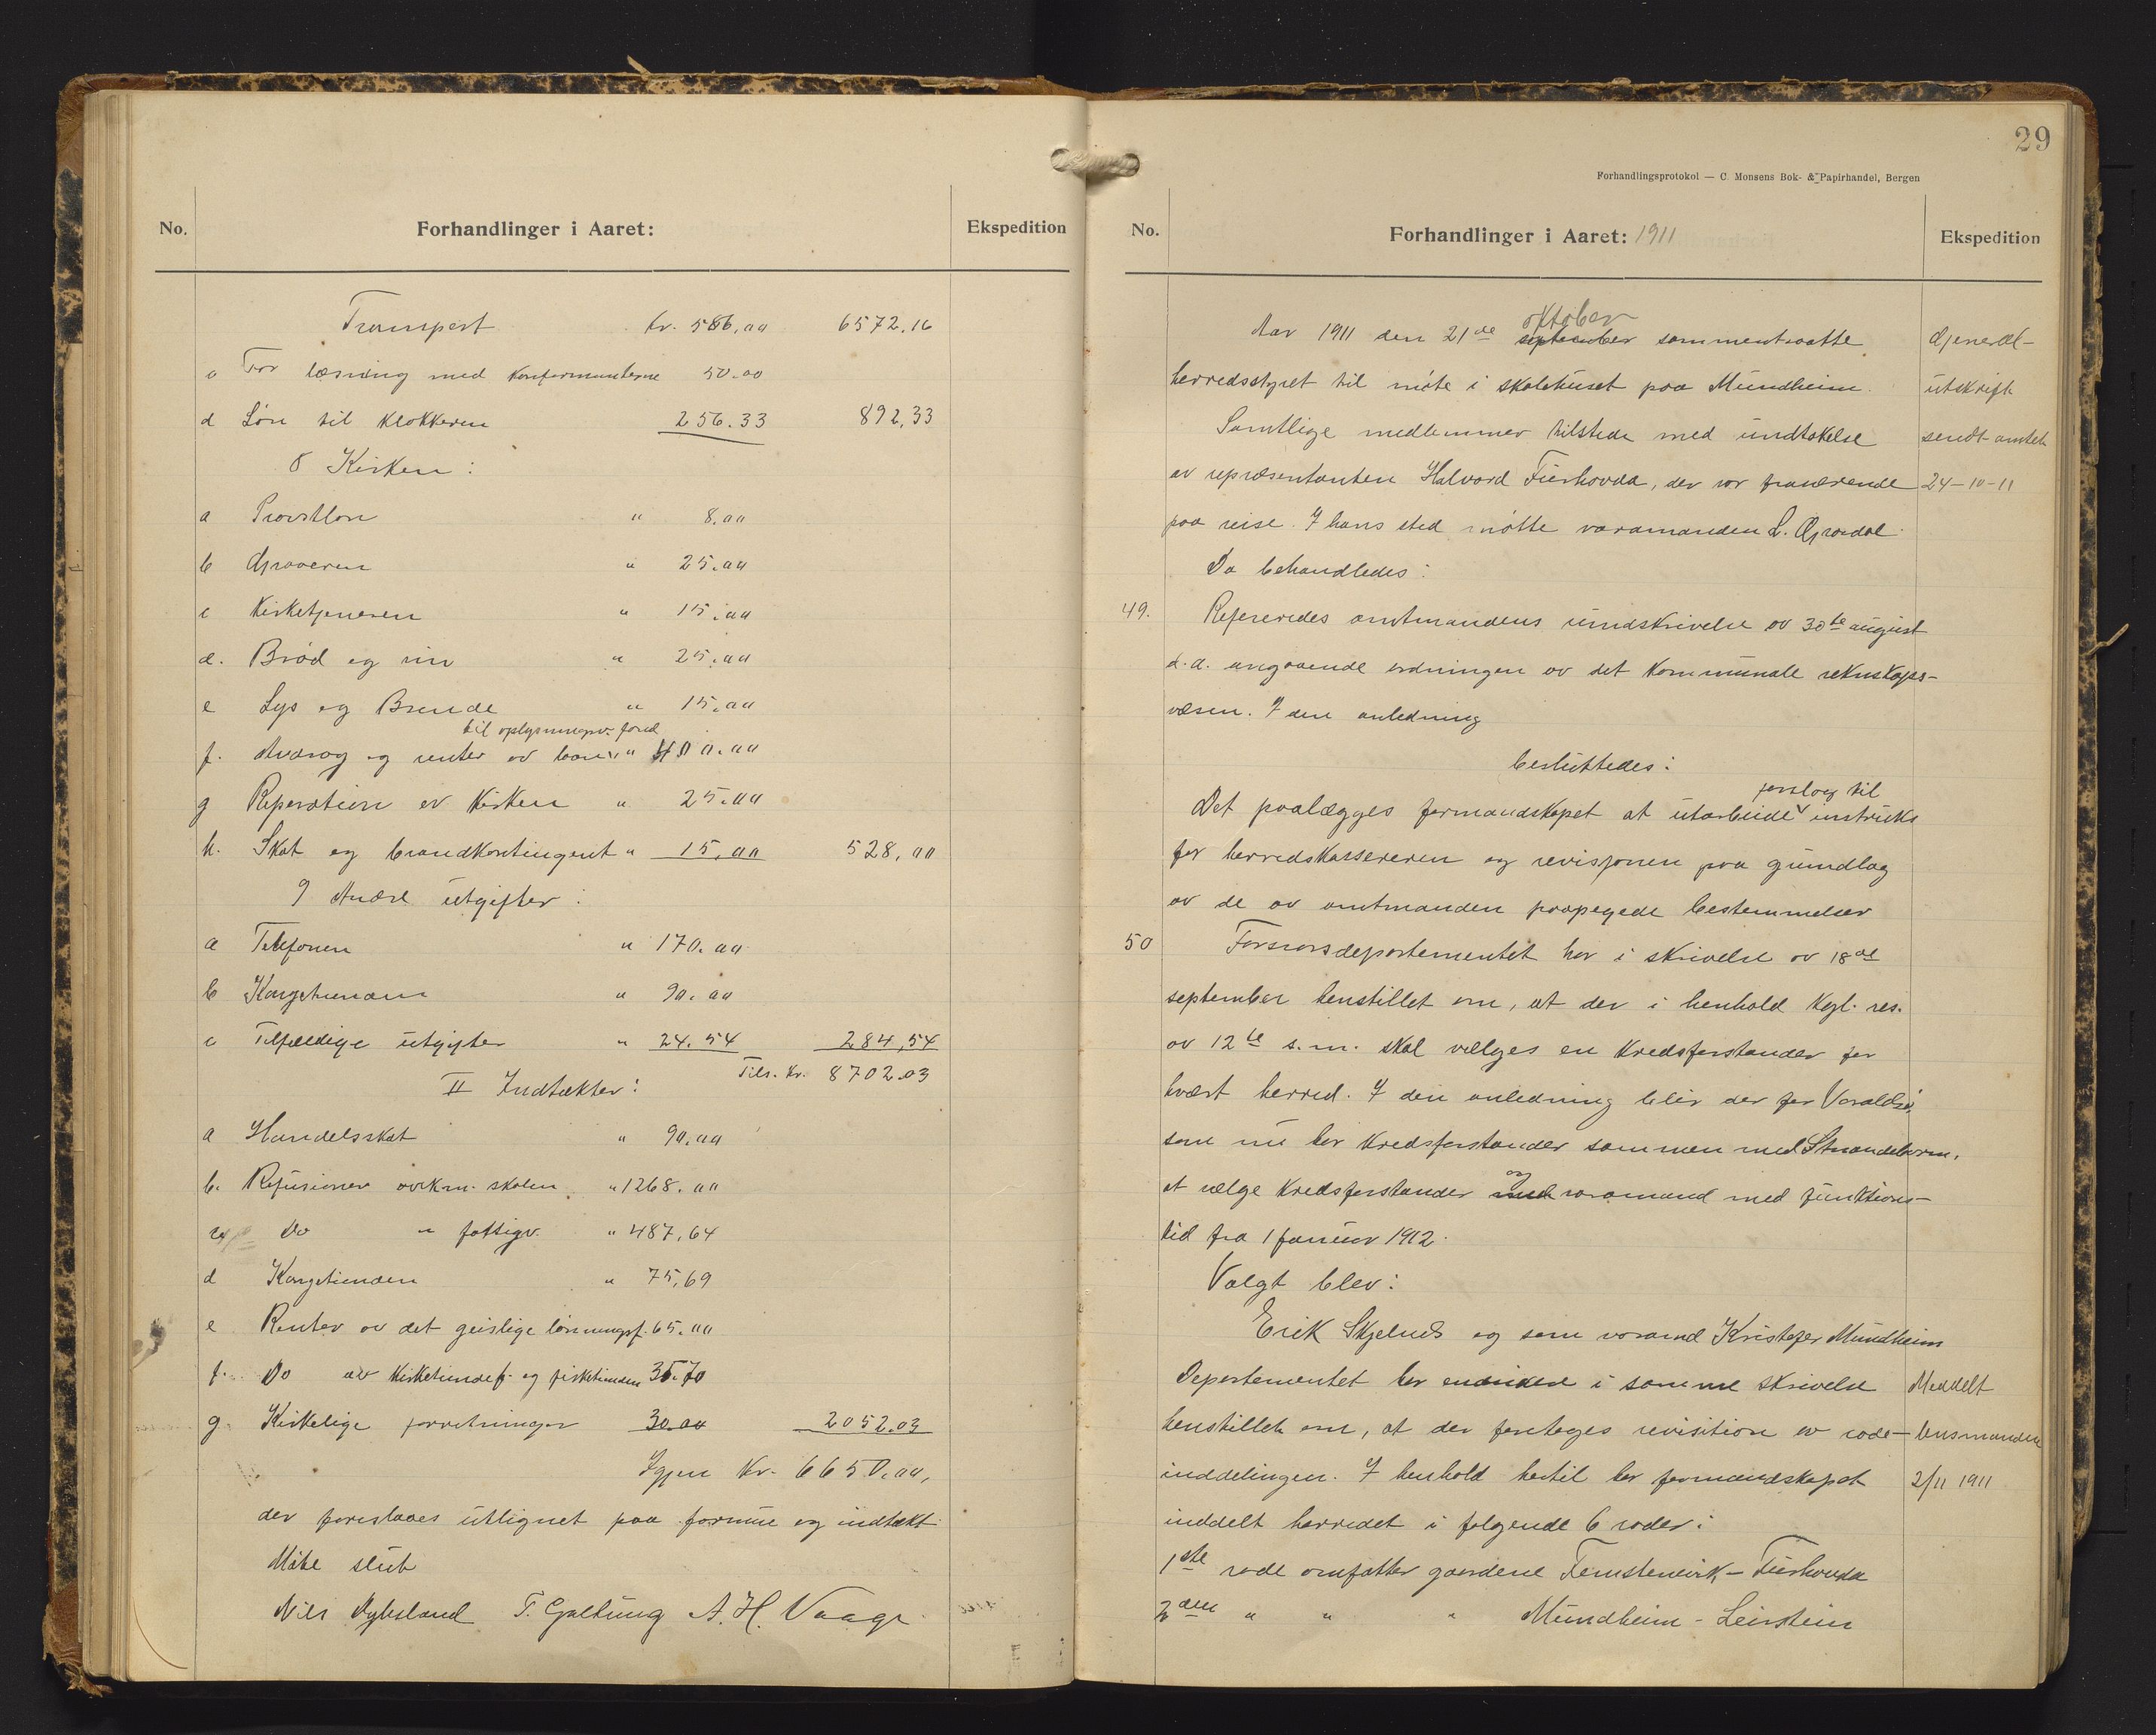 No.
Forhandlinger i Aaret:
Ekspedition
Transport kr. 586,00 6572.16
c For læsning med konfirmanterne 50.00
d Løn til klokkeren 256.33 892,33
8 Kirken:
a Provstløn " 8.00
b Graveren " 25.00
c Kirketjeneren " 15.00
d. Brød og vin " 25.00
e Lys og Brende " 15.00
til oplysningsv. fond
f. Avdrag og renter av laan " 400.00
g Reperation av kirken " 25.00
h. Skat og brandkontingent " 15,00 528,00
9 Andre utgifter:
a Telefonen " 170.00
b Kongetienden " 90.00
c Tilfældige utgifter " 24.54 284,54
Tils. Kr. 8702.03
II Indtækter:
a Handelsskat " 90.00
b. Refusioner av skolen " 1268.00
Do " fattigv. " 487,64
d Kongetienden " 75,69
e Renter av det geistlige lønningsf. 65.00
f. Do av kirketiendef. og fisketienden 35.70
g Kirkelige forretninger 30.00 2052.03
Igjen Kr. 6650.00,
der foreslaaes utlignet paa formue og indtækt
Møte slut
Nils Dybsland T. Galtung A. H. Vaage
29
Forhandlingsprotokol — C. Monsens Bok- & Papirhandel, Bergen
No.
Forhandlinger i Aaret: 1911
Ekspedition
oktober
Aar 1911 den 21de september sammentraatte
Gjeneral-
herredsstyret til møte i skolehuset paa Mundheim.
utskrift
Samtlige medlemmer tilstede med undtakelse
sendt amtet
av repræsentanten Halvard Fuerhovda, der var fraværende
24-10-11
paa reise. I hans sted møtte varamanden L. Gjrødal.
Da behandledes:
49. Refereredes amtmandens rundskrivelse av 30te august
d.a. angaaende ordningen av det kommunale reknskaps-
væsen. I den anledning
besluttedes:
forslag til
Det paalægges formandskapet at utarbeide instruks
for herredskassereren og revisjonen paa grundlag
av de av amtmanden paapegede bestemmelser
50 Forsvarsdepartementet har i skrivelse av 18de
september henstillet om, at der i henhold kgl. res.
av 12te s.m. skal vælges en kredsforstander for
hvært herred. I den anledning blir der for Varaldsø,
som nu har kredsforstander sammen med Strandebarm,
og
at vælge kredsforstander med varamand med funktions-
tid fra 1 januar 1912.
Valgt blev:
Erik Skjelnes og som varamd Kristofer Mundheim
Departementet har endvidere i samme skrivelse
Meddelt
henstillet om, at der foretages revisition av rode-
lensmanden
inddelingen. I henhold hertil har formandskapet
2/11 1911
inddelt herredet i følgende 6 roder:
1ste rode omfatter gaardene Femstenevik - Fuerhovda
2den " " " Mundheim - Leirstein